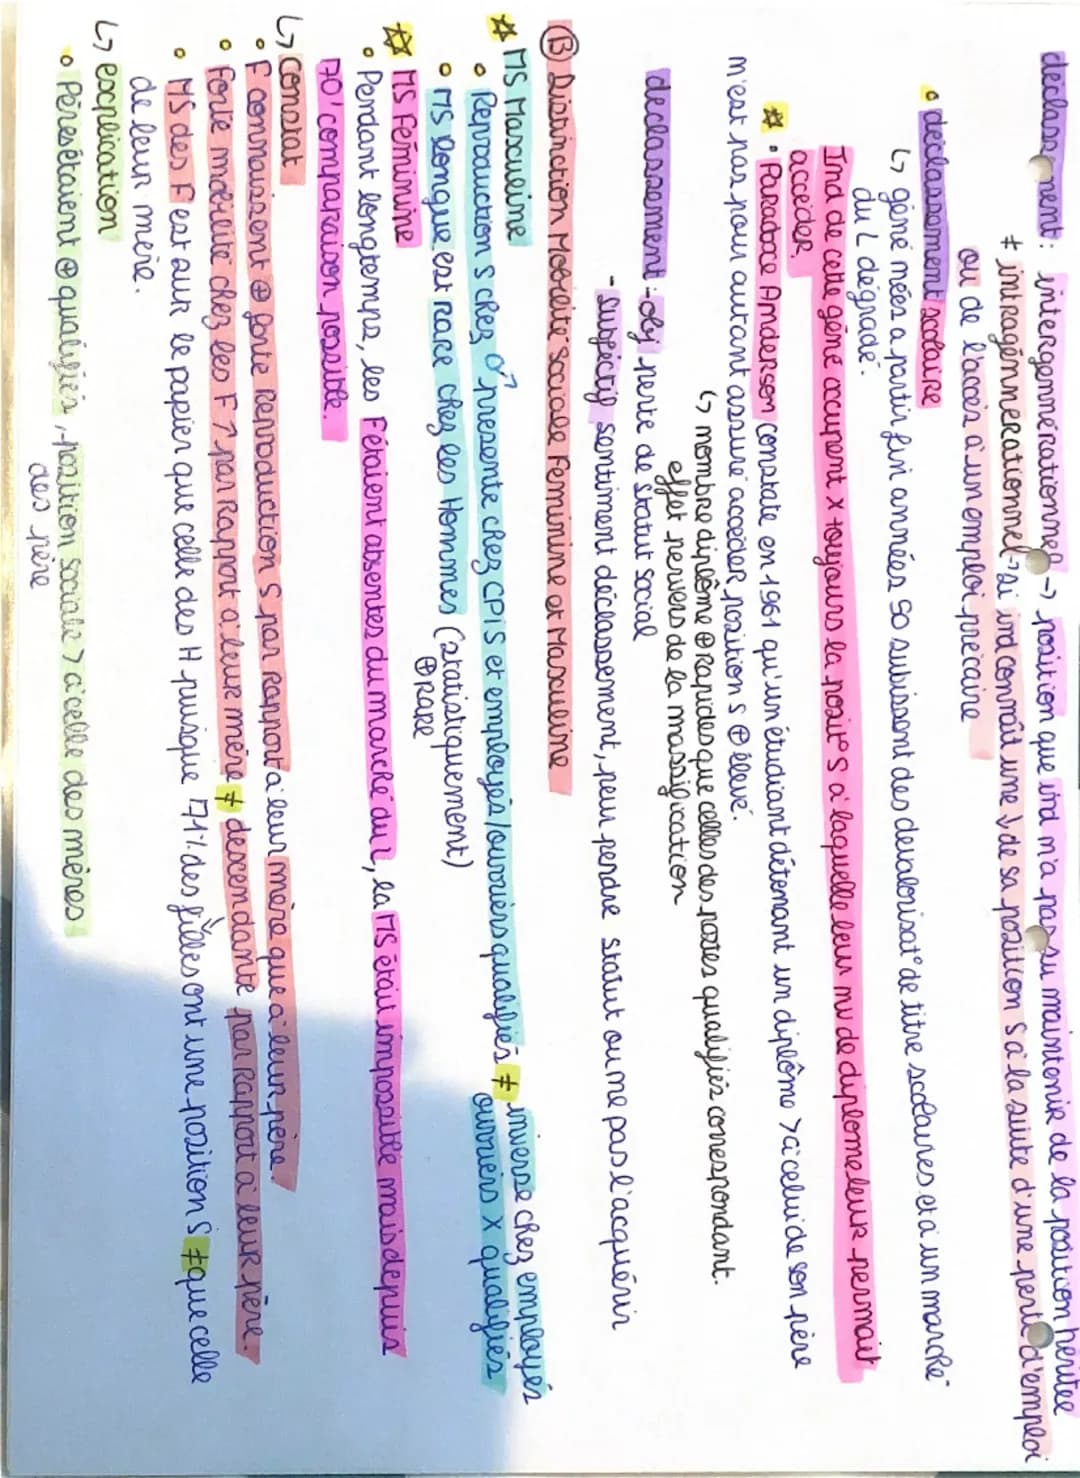 déclassement : intergénnérationnel → position que ind n'a pas su maintenir de la position héritée
≠ intragénnérationnel → si ind connaît une ↓ de sa position s à la suite d'une perte d'emploi
ou de l'accès à un emploi précaire
• déclassement scolaire
↳ géné nées a partir fin années 90 subissent des dévalorisat° de titre scolaires et à un marché
du L dégradé.
Ind de cette géné occupent x toujours la posit° S à laquelle leur nv de diplome leur permait
accéder.
• Paradoxe Anderson constate en 1961 qu'un étudiant détenant un diplôme > à celui de son père
n'est pas pour autant assuré accéder position s ⊕ élevé.
↳ nombre diplôme ⊕ Rapides que celles des postes qualifiés correspondant.
effet pervers de la massification
déclassement - obj perte de Statut social
- subjectif sentiment déclassement, peur perdre statut ou ne pas l'acquérir
Ⓑ Distinction Mobilité Sociale Feminine et Masculine
MS Masculine
• Reproduction s chez ♂ présente chez CPIS et employés/ouvriers qualifiés ≠ inverse chez employés
ouvriers x qualifiés
• MS longue est rare chez les Hommes (statistiquement)
⊕ RARE
MS Féminine
• Pendant longtemps, les F étaient absentes du marché du L, la MS était impossible mais depuis
70' comparaison possible.
↳ constat
• F connaissent ⊕ forte Reproduction S par rapport à leur mère que à leur père.
• Forte mobilité chez les F ↑ par Rapport à leur mère ≠ descendante par Rapport à leur père.
• MS des F est sur le papier que celle des H puisque 71% des filles ont une position S ≠ que celle
de leur mère.
↳ explication
• Pères étaient ⊕ qualifiés, position sociale > à celle des mères
des père